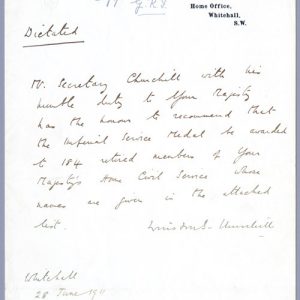 G.R.I.
Home Office,
Whitehall,
S.W.
Dictated
Mr. Secretary Churchill with his
humble duty to Your Majesty
has the honour to recommend that
the Imperial Service Medal be awarded
to 184 retired members of Your
Majesty's Home Civil Service whose
names are given in the attached
list.
Winston S. Churchill
Whitehall
28 June 1911